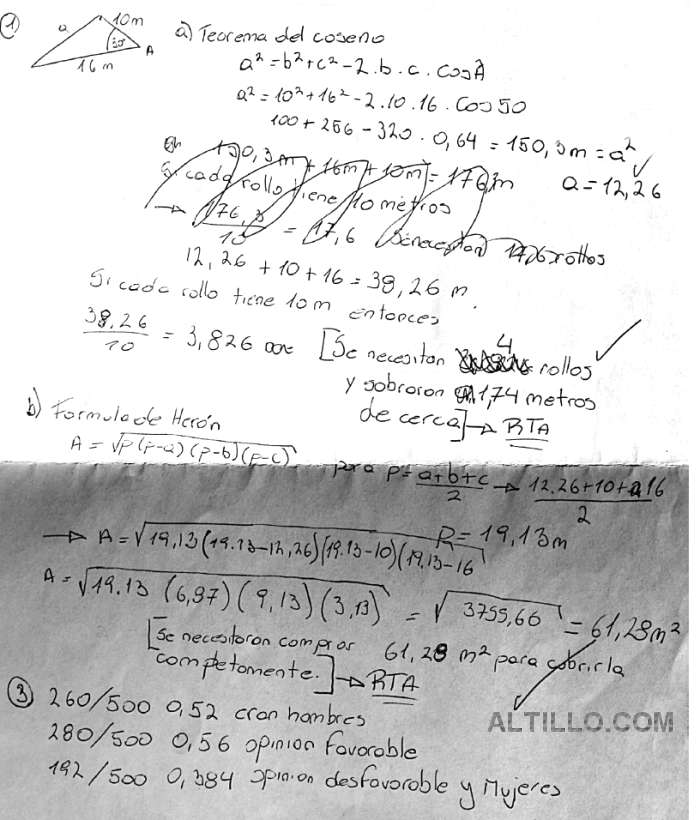 1
a
10m
50
A
16 m
a) Teorema del coseno
a² = b² + c² - 2.b.c.cosÂ
a² = 10² + 16² - 2.10.16.Cos 50
100 + 256 - 320 . 0,64 = 150,3m = a²
a = 12,26
150,3m + 16m + 10m = 176,3m
Si cada rollo tiene 10 metros
→ 176,3/10 = 17,6 Se necesitan rollos
12,26 + 10 + 16 = 38,26 m.
Si cada rollo tiene 10m entonces
38,26/10 = 3,826 [Se necesitan 4 rollos
y sobraron 1,74 metros
de cerca] → RTA
b) Formula de Herón
A = √p(p-a)(p-b)(p-c)
para p = a+b+c/2 → 12.26+10+16/2
→ A = √19,13(19.13-12,26)(19.13-10)(19,13-16
P = 19,13m
A = √19.13 (6,87)(9,13)(3,13) = √3755,66 = 61,28m²
[Se necesitaron comprar 61,28 m² para cubrirla
completamente.] → RTA
3
260/500 0,52 eran hombres
280/500 0,56 opinion favorable
192/500 0,384 opinion desfavorable y Mujeres
ALTILLO.COM